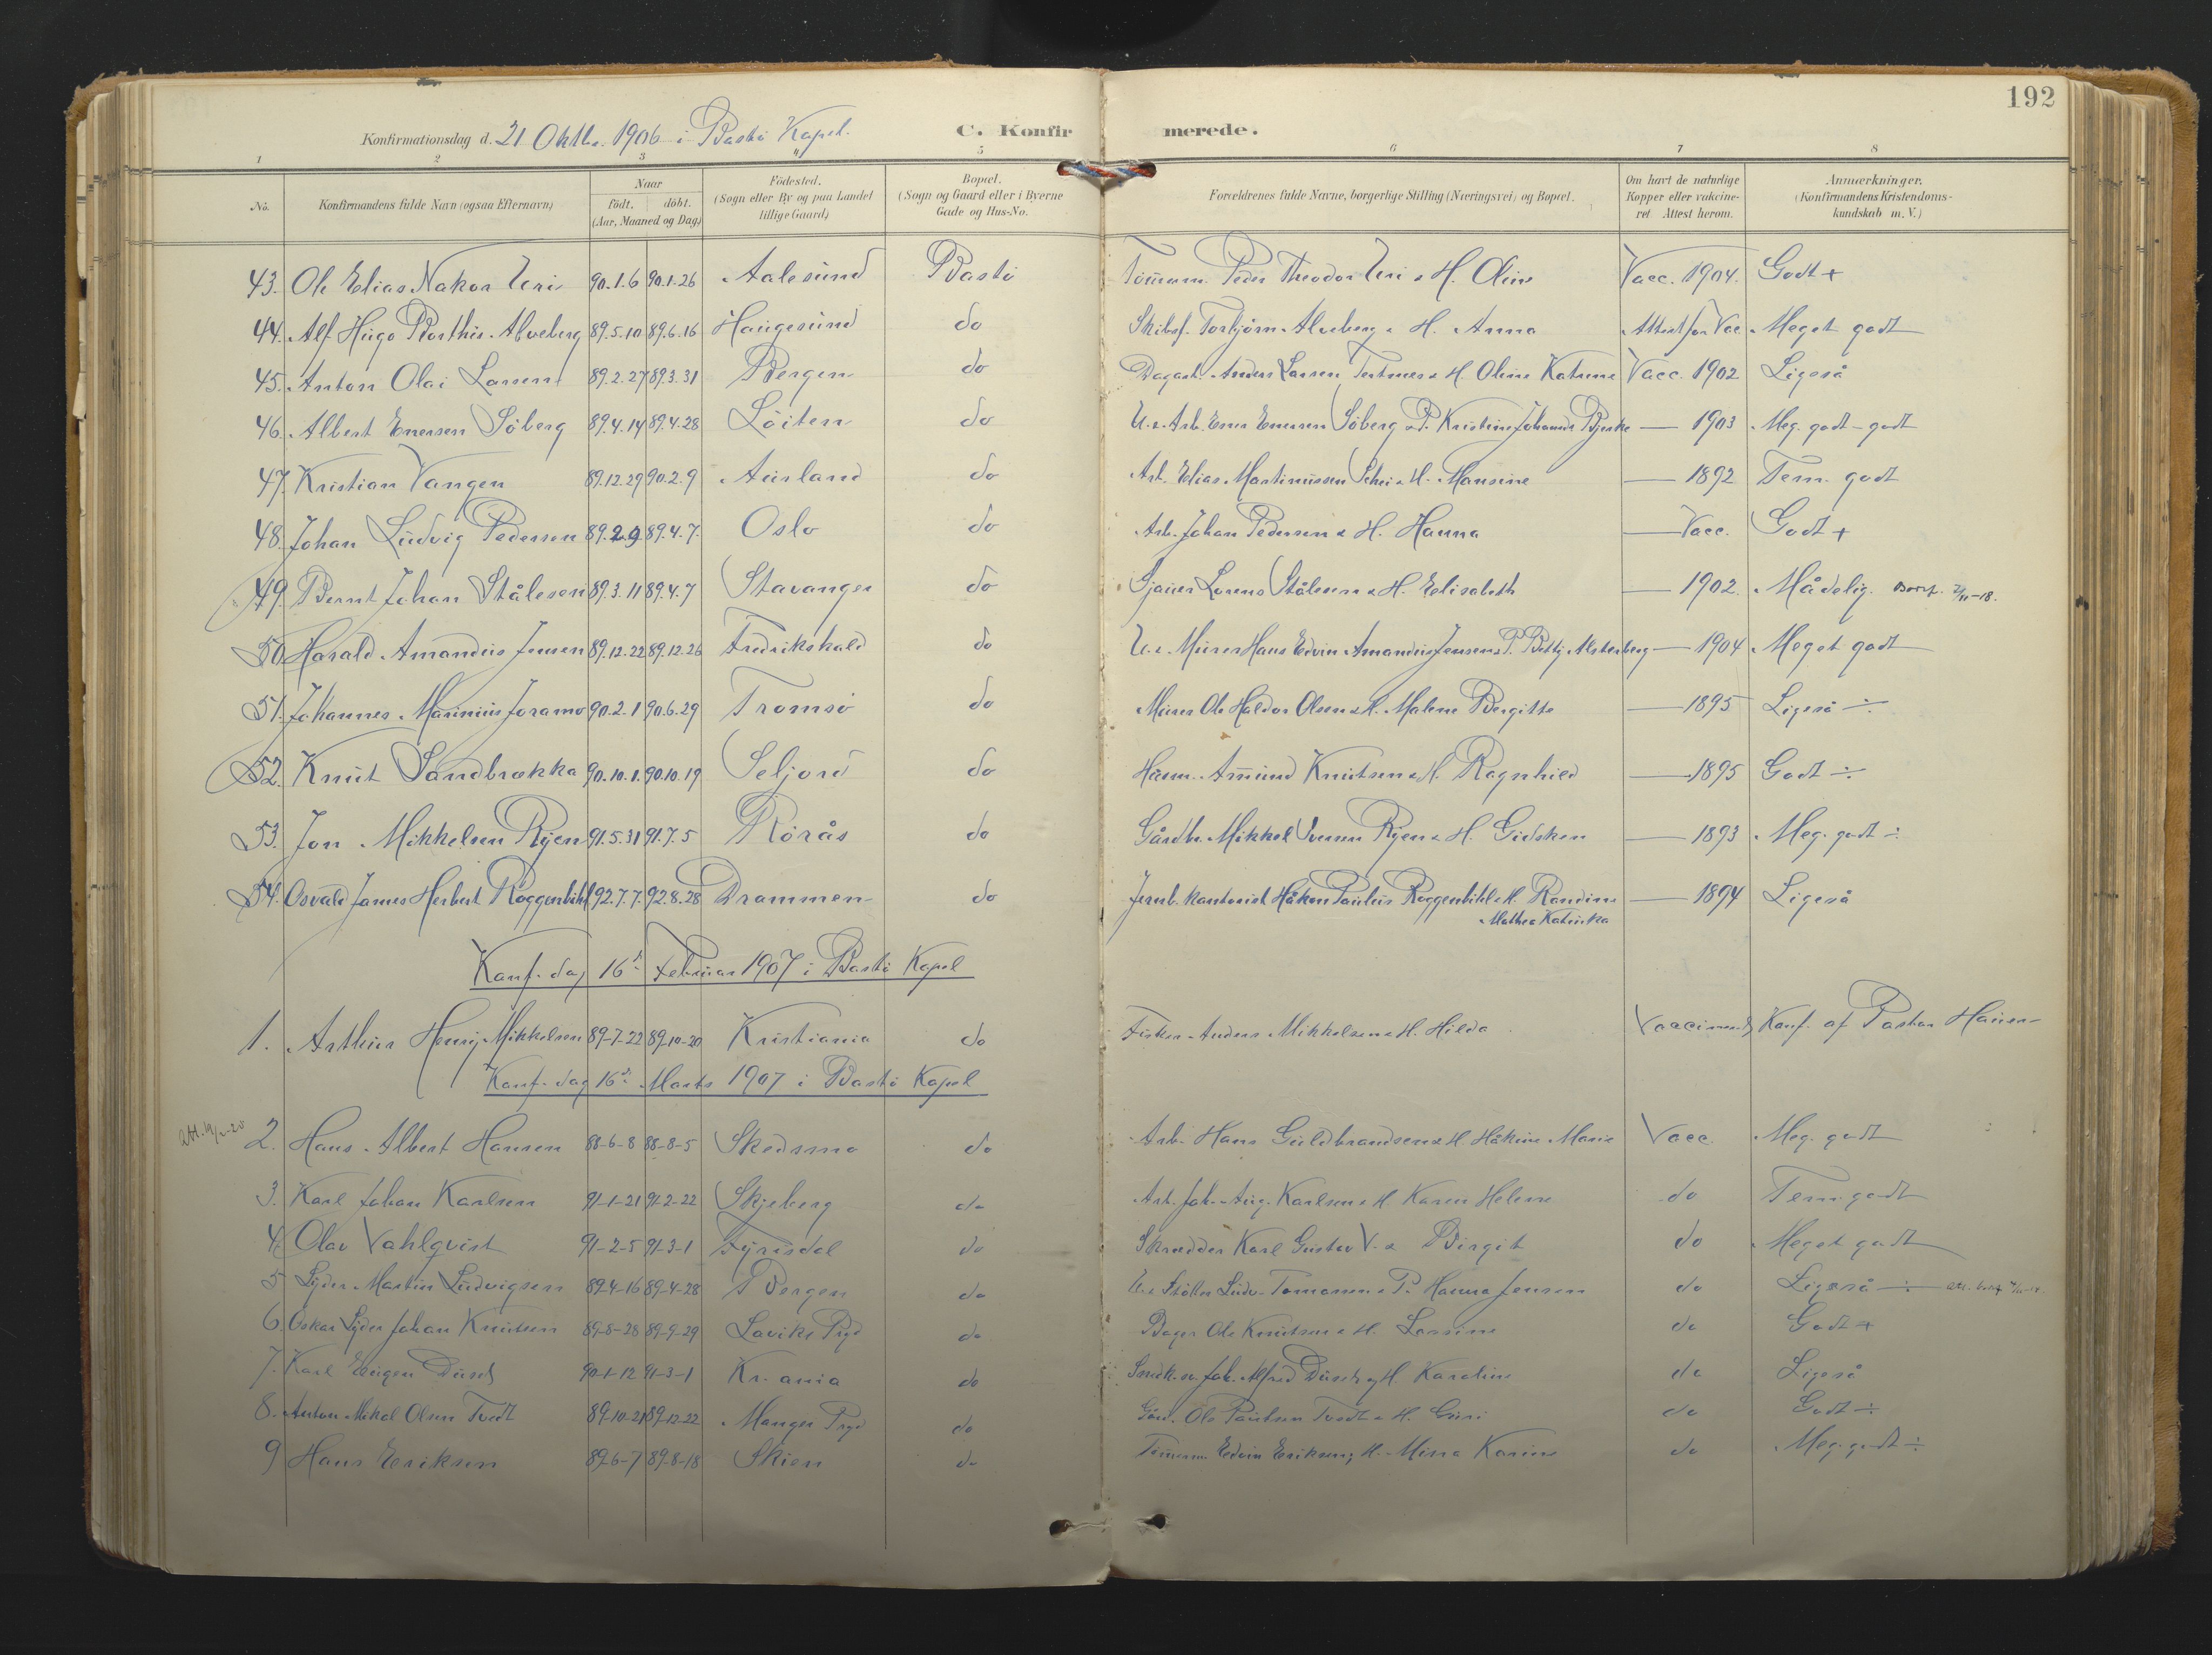 192
Konfirmationsdag d. 21 Oktbr. 1906 i Bastö Kapel. C. Konfirmerede.
1 2 3 4 5 6 7 8
No. Konfirmandens fulde Navn (ogsaa Efternavn) Naar födt. döbt. (Aar, Maaned og Dag) Födested. (Sogn eller By og paa Landet tillige Gaard) Bopæl. (Sogn og Gaard eller i Byerne Gade og Hus-No. Forældrenes fulde Navne, borgerlige Stilling (Næringsvei) og Bopæl. Om havt de naturlige Kopper eller vakcineret. Attest herom. Anmærkninger. (Konfirmandens Kristendomskundskab m. V.)
43. Ole Elias Nakor Uri 90.1.6 90.1.26 Aalesund Bastö Tömmerm. Peder Theodor Uri & H. Oline Vacc. 1904. Godt +
44. Alf Hugo Alveberg 89.5.10 89.6.16 Haugesund do Skibsf. Torbjörn Alveberg & H. Anna Attest for Vac. Meget godt
45. Anton Olai Larsen 89.2.27 89.3.31 Bergen do Dagarb. Anders Larsen & H. Oline Katrine Vacc. 1902 Ligeså
46. Albert Enersen Söberg 89.4.14 89.4.28 Löiten do U. e. Arb. Ener Enersen Söberg & P. Kristine Johanne Bjerke — 1903 Meg. godt - godt
47. Kristian Vangen 89.12.29 90.2.9 Aurland do Arb. Elias Martinussen & H. Mansine — 1892 Tem. godt
48. Johan Ludvig Pedersen 89.2.9 89.4.7. Oslo do Arb. Johan Pedersen & H. Hanna — Vacc. Godt +
49. Bernt Johan Stålesen 89.3.11 89.4.7 Stavanger do Lorens Stålesen & H. Elisabeth — 1902. Mådelig.
50. Harald Amandus Jensen 89.12.22 89.12.26 Fredrikshald do U. e. Murer Hans Edvin Amandus Jensen & P. Betty Alsterberg — 1904 Meget godt
51. Johannes Marinius Joramo 90.2.1 90.6.29 Tromsö do Murer Ole Haldor Olsen & H. Malene Bergitte — 1895 Ligeså ÷
52. Knut Sandbrækka 90.10.1. 90.10.19 Seljord do Husm. Amund Knutsen & H. Ragnhild — 1895 Godt ÷
53. Jon Mikkelsen Ryen 91.5.31 91.7.5 Rörås do Gårdbr. Mikkel Iversen Ryen & H. Gidsken — 1893 Meg. godt ÷
54. Osvald James Herbert Roggenbihl 92.7.7. 92.8.28 Drammen do Jernb. kontorist Håkon Paulus Roggenbihl & H. Randine — 1894 Ligeså
Mathea Katinka
Konf. dag 16d. Februar 1907 i Bastö Kapel
1. Arthur Henry Mikkelsen 89-7-22 89-10-20 Kristiania do Fisker Anders Mikkelsen & H. Hilda Vaccineret Konf. af Pastor Hansen
Konf. dag 16d. Marts 1907 i Bastö Kapel
2. Hans Albert Hansen 88-6-8 88-8-5 Skedsmo do Arb. Hans Guldbrandsen & H. Håkine Marie Vacc. Meg. godt
3. Karl Johan Karlsen 91-1-21 91-2-22 Skjeberg do Arb. Joh. Aug. Karlsen & H. Karen Helene do Tem. godt
4. Olav Vahlqvist 91-2-5 91-3-1 Fyrisdal do Skrædder Karl Gustav V. & Birgit do Meget godt
5 Lyder Martin Ludvigsen 89-4-16 89-4-28 Bergen do U. e. Ludv. Tomassen & P. Hanna Jensen do Ligeså ÷
6. Oskar Lyder Johan Knutsen 89-8-28 89-9-29 Laviks Prgd do Bager Ole Knutsen & H. Larsine do Godt +
7. Karl Eugen Dusch 90-1-12 91-3-1 Kr.ania do Snedk. sv. Joh. Alfred Dusch og H. Karoline do Ligeså
8. Anton Mikal Olsen Tvedt 89-10-21 89-12-22 Manger Prgd do Gårdbr. Ole Paulsen Tvedt & H. Guri do Godt ÷
9 Hans Eriksen 89-6-7 89-8-18 Skien do Tömmerm. Edvin Eriksen, H. Mina Karine do Meg. godt ÷